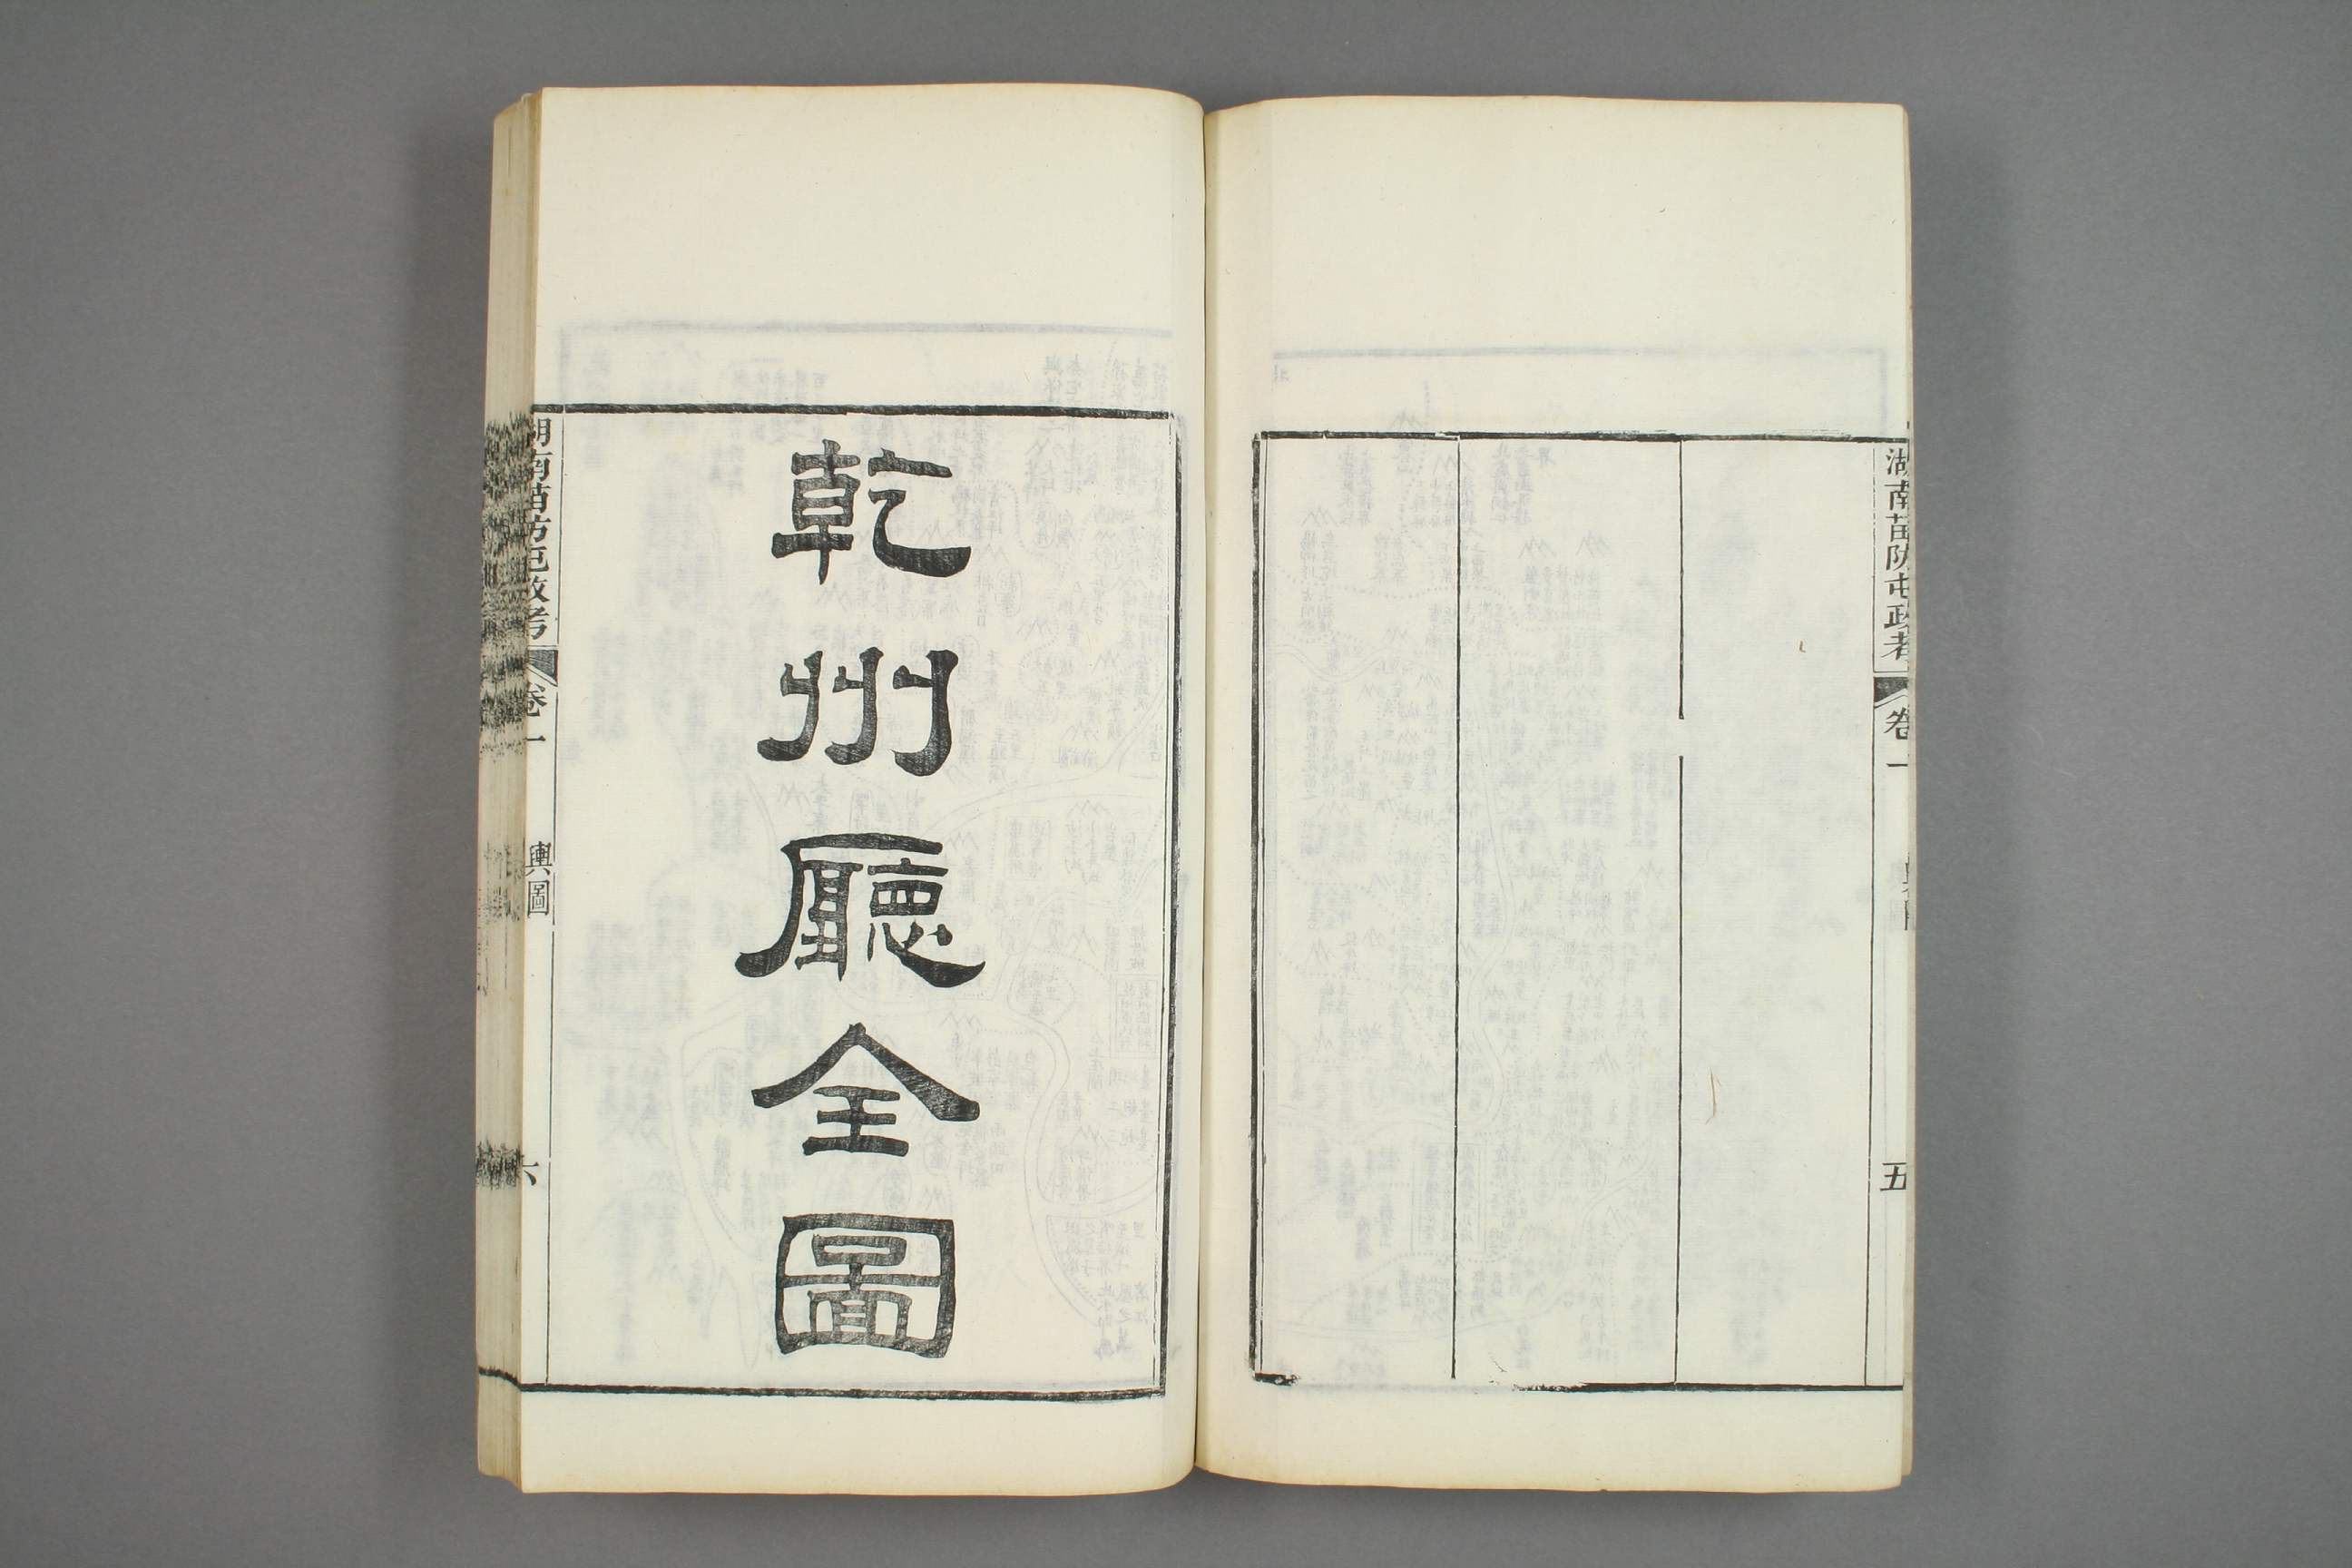 湖南苗防屯政考
卷一
五
乾州廳全圖
湖南苗防屯政考
卷一
輿圖
六